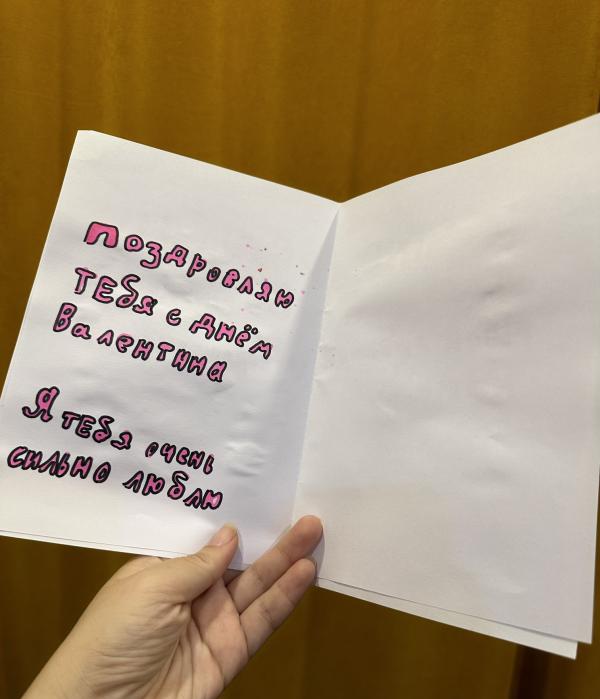 Поздровляю
ТЕбя с днём
Валентина
Я тебя очень
сильно люблю